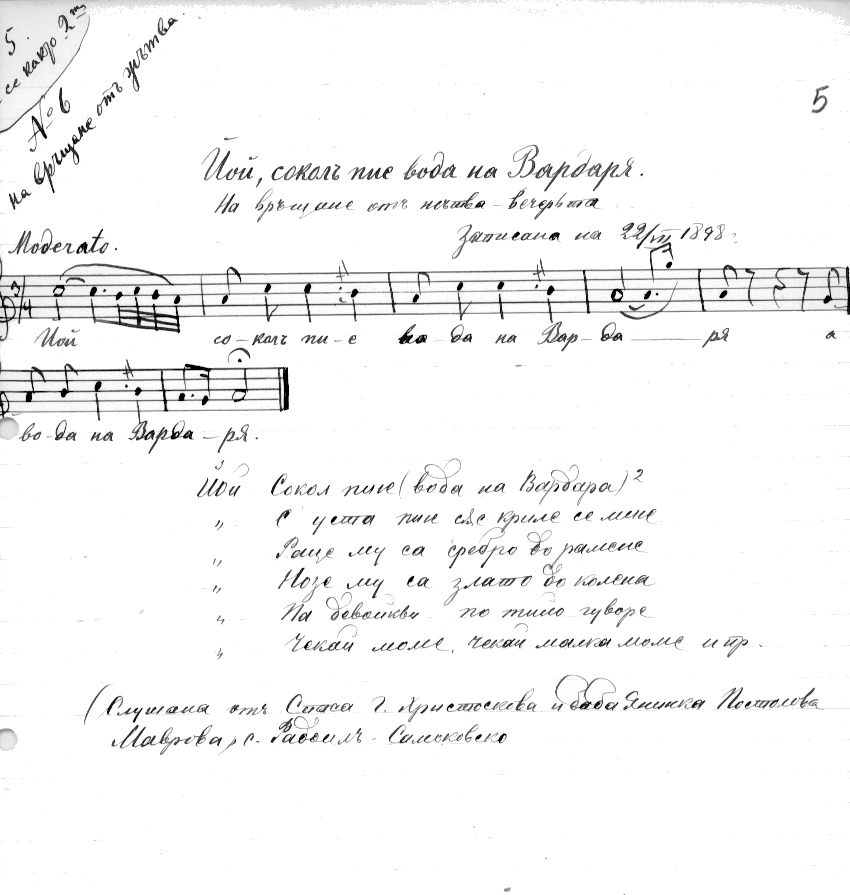 5.
се както 2
№ 6
на връщане отъ жътва.
5
Йой, соколъ пие вода на Вардаря.
На връщане отъ жътва – вечерьта
Записана на 22/VII 1898
Moderato.
3/4
Йой со–колъ пи–е во–да на Вар–да—ря а
во–да на Варда–ря.
Йой Сокол пие (вода на Вардара)2
„ С уста пие със криле се мие
„ Раце му са сребро до рамене
„ Нозе му са злато до колена
„ На девойкьи по тийо гуворе
„ Чекай моме, чекай малка моме и пр.
(Слушана отъ Спаса Г. Христоскова и баба Янинка Постолова
Маврова, с. Радоилъ - Самоковско